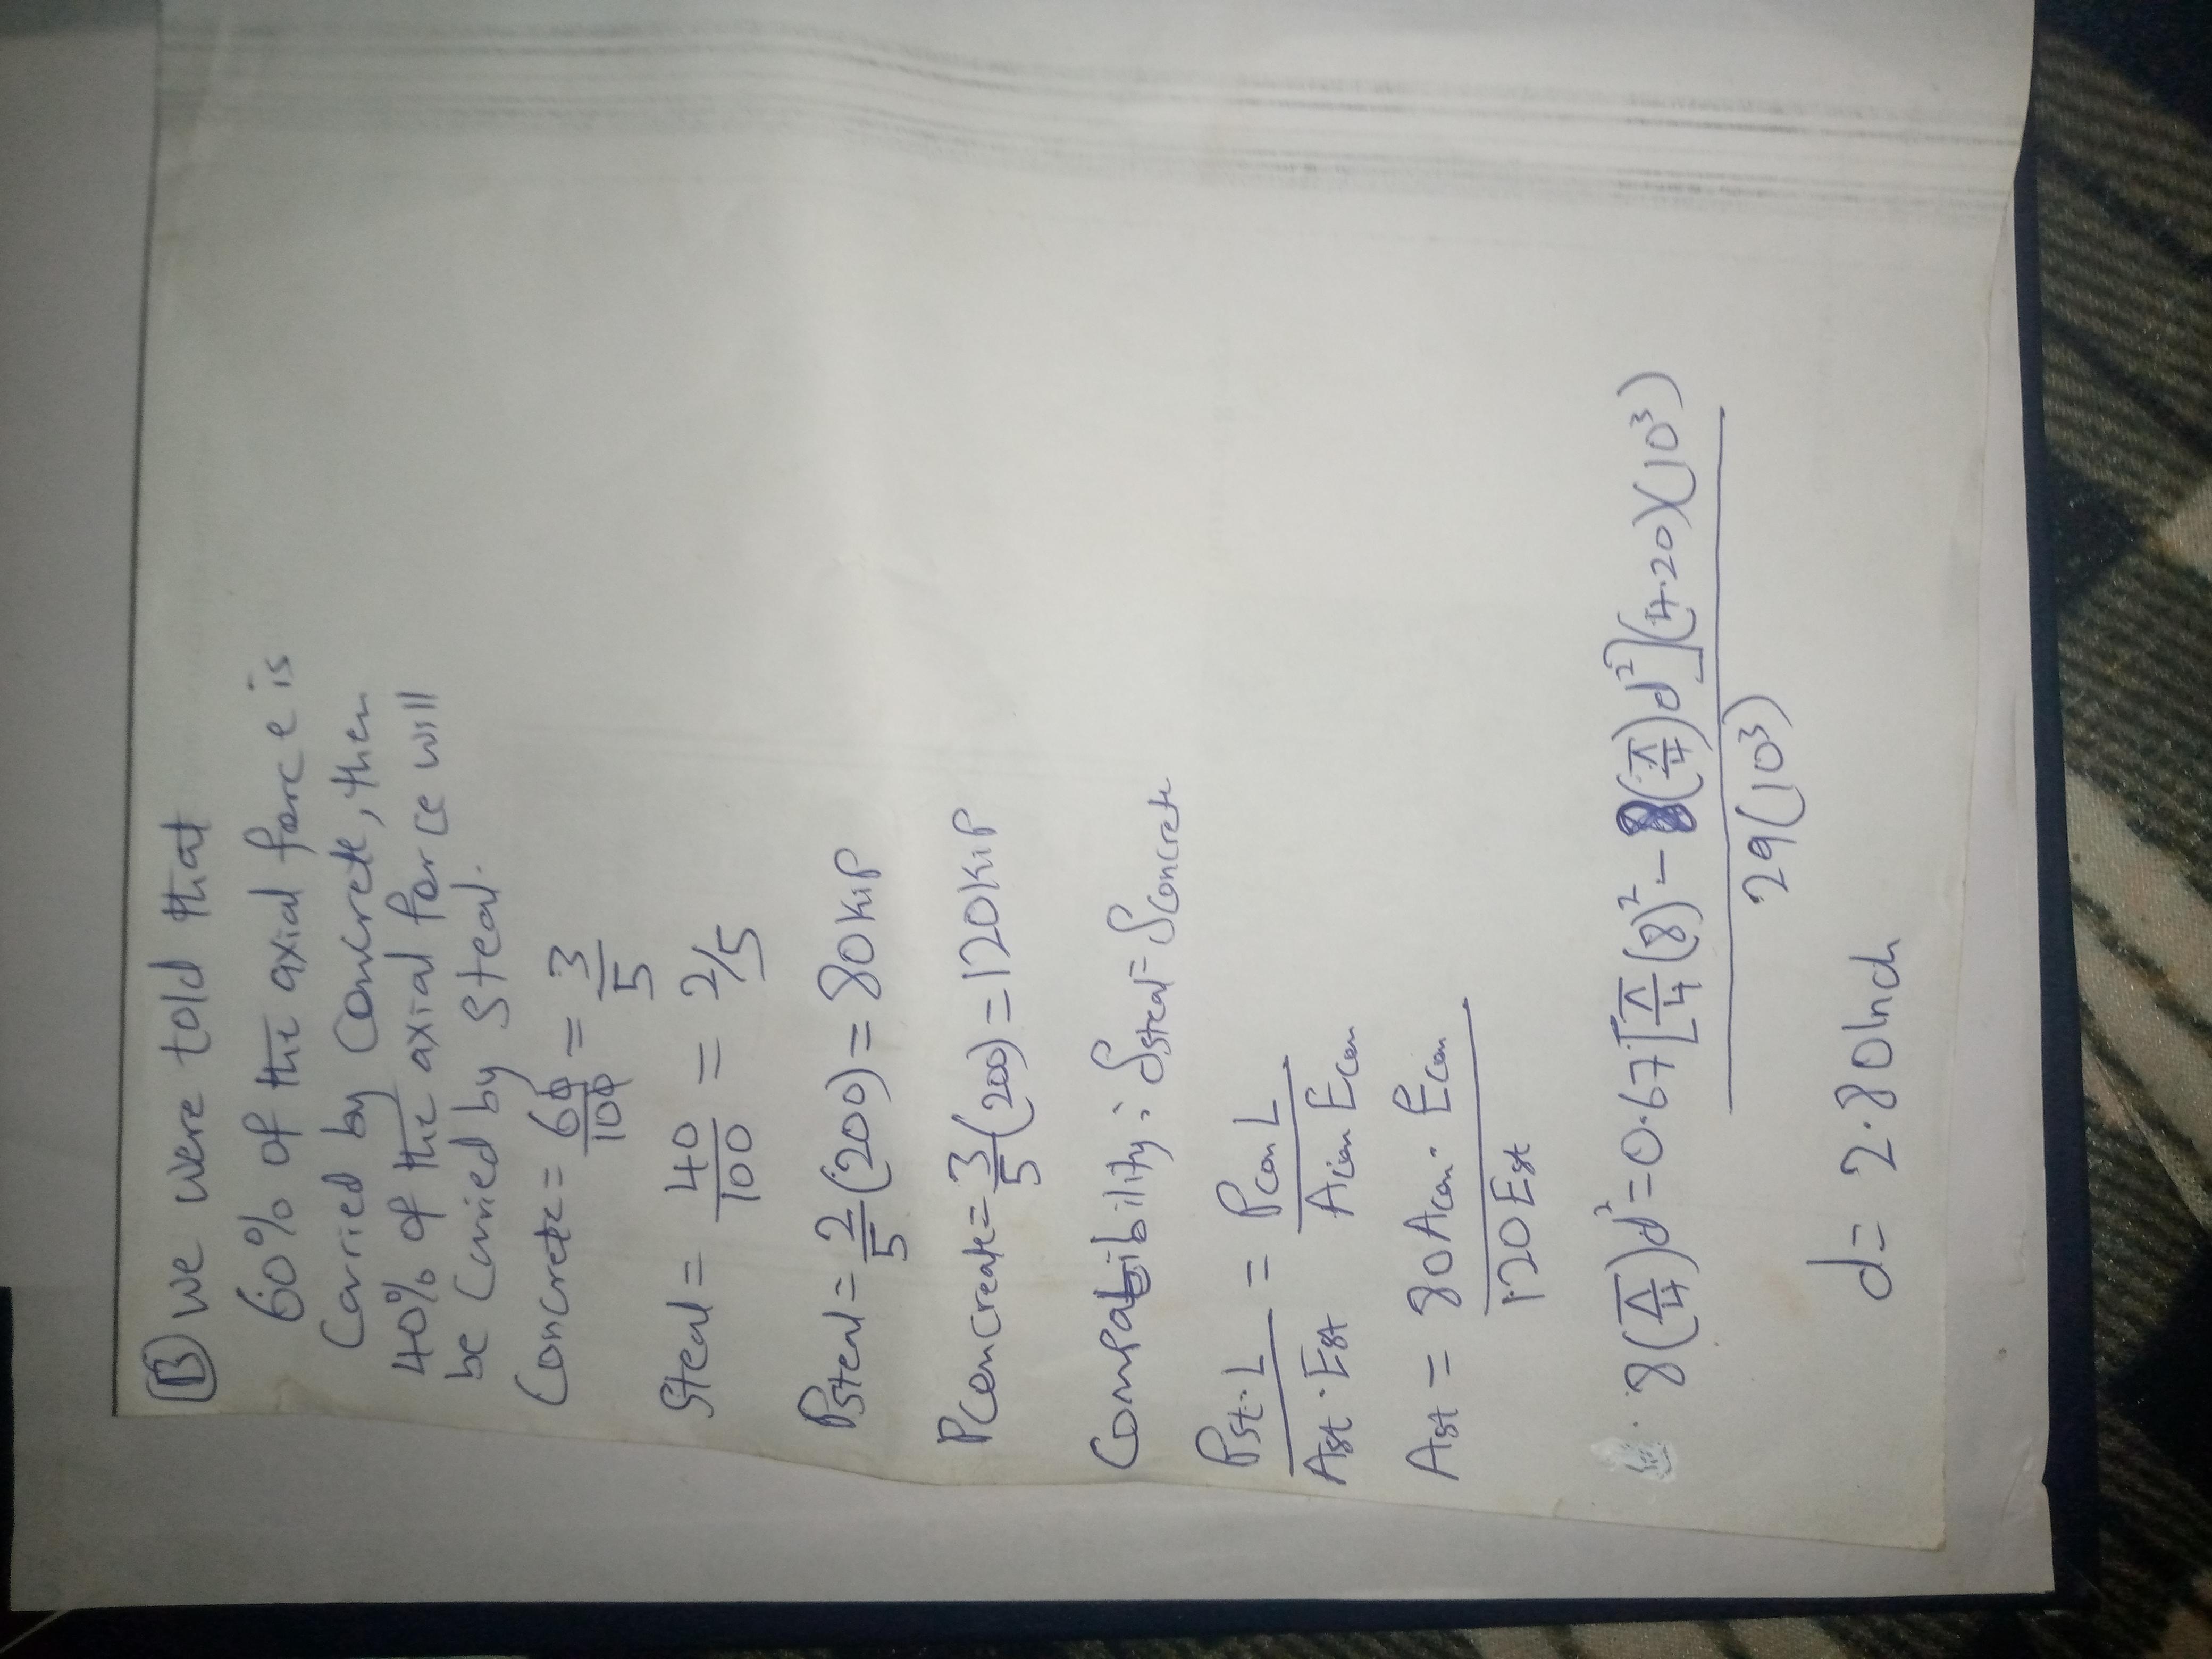 (B) We were told that
60% of the axial force is
Carried by Concrete, then
40% of the axial force will
be Carried by Steal.
Concrete = 60/100 = 3/5
Steal = 40/100 = 2/5
Psteal = 2/5 (200) = 80 KiP
Pconcreate = 3/5 (200) = 120 KiP
Compatibility: δsteal = δconcrete
Pst. L / Ast . Est = Pcon L / Acon Econ
Ast = 80 Acon. Econ / 120 Est
8(π/4)d² = 0.67[π/4 (8)² - 8(π/4)d²](4.20)(10³) / 29(10³)
d = 2.80 Inch